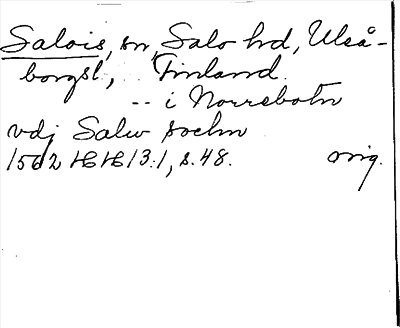 Salois, sn, Salo hd, Uleå-
borgs l., Finland.
-- i Norrebotn
vdj Salw sochn
1562 HH 13:1, s. 48. orig.